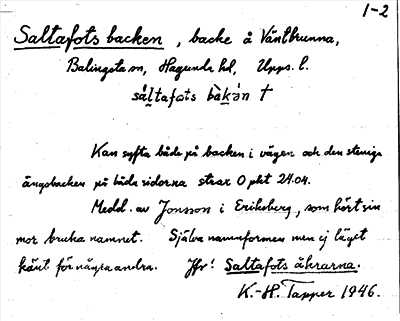 1-2
Saltafots backen, backe å Väntbrunna,
Balingsta sn, Hagunda hd, Upps. l.
sáltafots bàkǝn †
Kan syfta både på backen i vägen och den steniga
ängsbacken på båda sidorna strax O pkt 24.04.
Medd. av Jonsson i Eriksberg, som hört sin
mor bruka namnet. Själva namnformen men ej läget
känt för några andra. Jfr: Saltafots åkrarna.
K.-H. Tapper 1946.